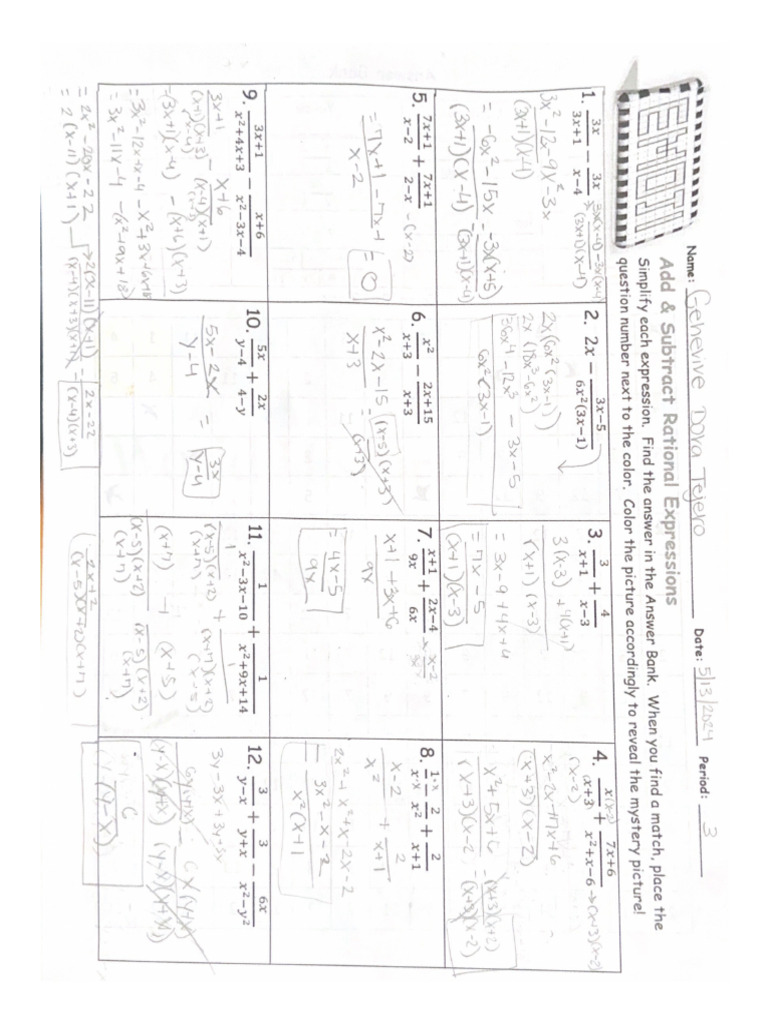 EMOJI
Name: Genevive Dova Tejero Date: 5/13/2024 Period: 3
Add & Subtract Rational Expressions
Simplify each expression. Find the answer in the Answer Bank. When you find a match, place the
question number next to the color. Color the picture accordingly to reveal the mystery picture!
1. 3x/(3x+1) − 3x/(x−4)
3x(x-4) - 3x(x-4
(3x+1)(x-4)
3x²-12-9x²-3x
(3x+1)(x-4)
= -6x²-15x = -3x(x+5)
(3x+1)(x-4) (3x+1)(x-4)
2. 2x − (3x−5)/(6x²(3x−1))
2x(6x²(3x-1))
2x(18x³-6x²)
36x⁴-12x³ - 3x-5
6x²(3x-1)
3. 3/(x+1) + 4/(x−3)
3(x-3) + 4(x+1)
(x+1)(x-3)
= 3x-9+4x+4
= 7x-5
(x+1)(x-3)
4. x(x-2)/(x+3) + (7x+6)/(x²+x−6) → (x+3)(x-2)
(x-2)
x²-2x+7x+6
(x+3)(x-2)
= x²+5x+6 = (x+3)(x+2)
(x+3)(x-2 (x+3)(x-2)
5. (7x+1)/(x−2) + (7x+1)/(2−x) -(x-2)
= 7x+1-7x-1 = 0
x-2
6. x²/(x+3) − (2x+15)/(x+3)
x²-2x-15 = (x-5)(x+3)
x+3 (x+3)
7. (x+1)/9x + (2x−4)/6x
x+1+3x+6
9x
= 4x-5
9x
8. 1·x/x·x − 2/x² + 2/(x+1)
x-2 + 2
x² x+1
2x²+x²+x-2x-2
= 3x²-x-2
x²(x+1
9. (3x+1)/(x²+4x+3) − (x+6)/(x²−3x−4)
3x+1 - x+6
(x+1)(x+3) (x-4)(x+1)
-(3x+1)(x-4) - (x+6)(x+3)
= 3x²-12x+x-4 - x²+3x+6x+18
= 3x²-11x-4 -(x²+9x+18)
= 2x²-20x-22
= 2(x-11)(x+1) → 2(x-11)(x+1) = 2x-22
(x-4)(x+3)(x+1) (x-4)(x+3)
10. 5x/(y−4) + 2x/(4−y)
5x-2x = 3x
y-4 y-4
11. 1/(x²−3x−10) + 1/(x²+9x+14)
1 + 1
(x-5)(x+2) (x+7)(x+2)
(x+7) (x-5)
(x+7) + (x+5)
(x-5)(x+2) (x-5)(x+2)
(x+7) (x+7)
2x+2
(x-5)(x+2)(x+7)
12. 3/(y−x) + 3/(y+x) − 6x/(y²−x²)
3y-3x+3y+3x
6
(y-x)